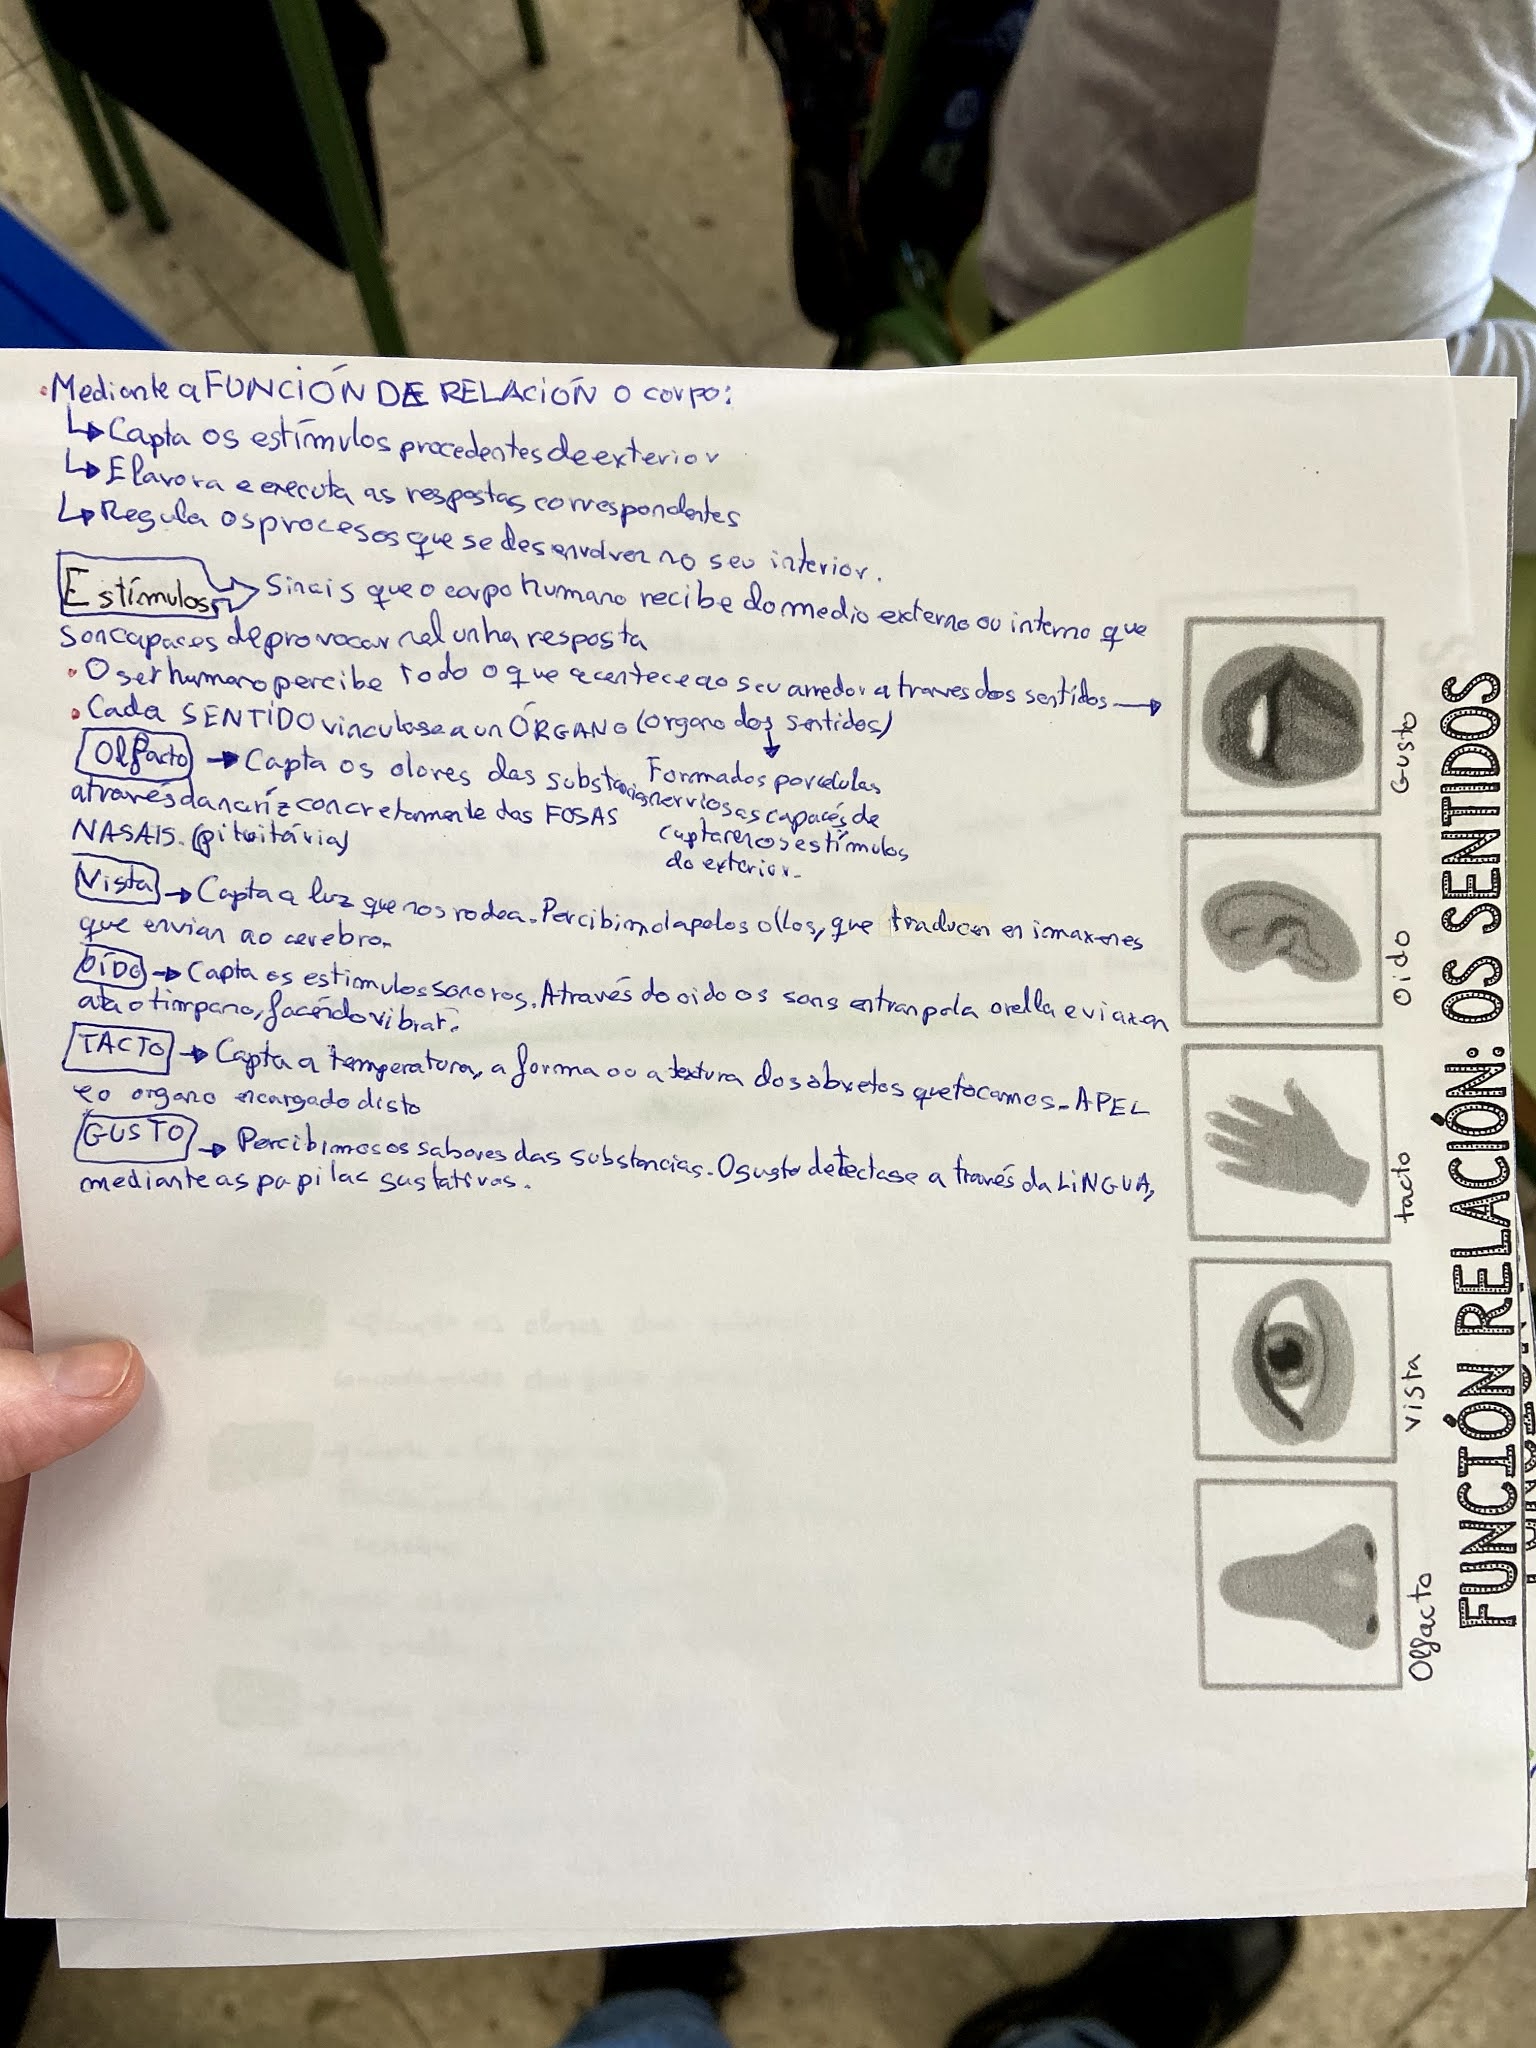 ·Mediante a FUNCIÓN DE RELACIÓN o corpo:
↳ Capta os estímulos procedentes de exterior
↳ Elavora e executa as respostas correspondentes
↳ Regula os procesos que se desenvolven no seu interior.
Estímulos → Sinais que o corpo humano recibe do medio externo ou interno que
son capaces de provocar nel unha resposta
· O ser humano percibe todo o que acontece ao seu arredor a traves dos sentidos →
· Cada SENTIDO vinculase a un ÓRGANO (organo dos sentidos)
Formados por celulas
nerviosas capacés de
captaren os estímulos
do exterior.
Olfacto → Capta os olores das substancias
através da naríz concretamente das FOSAS
NASAIS. (pituitária)
Vista → Capta a luz que nos rodea. Percibimola polos ollos, que traducen en imaxenes
que envian ao cerebro.
OÍDO → Capta os estimulos sonoros. Através do oido os sons entran pola orella e viaxan
ata o timpano, facéndo vibrar.
TACTO → Capta a temperatura, a forma ou a textura dos obxetos que tocamos. A PEL
e o organo encargado disto
GUSTO → Percibimos os sabores das substancias. O gusto detectase a través da LINGUA,
mediante as papilas gustativas.
FUNCIÓN RELACIÓN: OS SENTIDOS
Olfacto
vista
tacto
Oido
Gusto